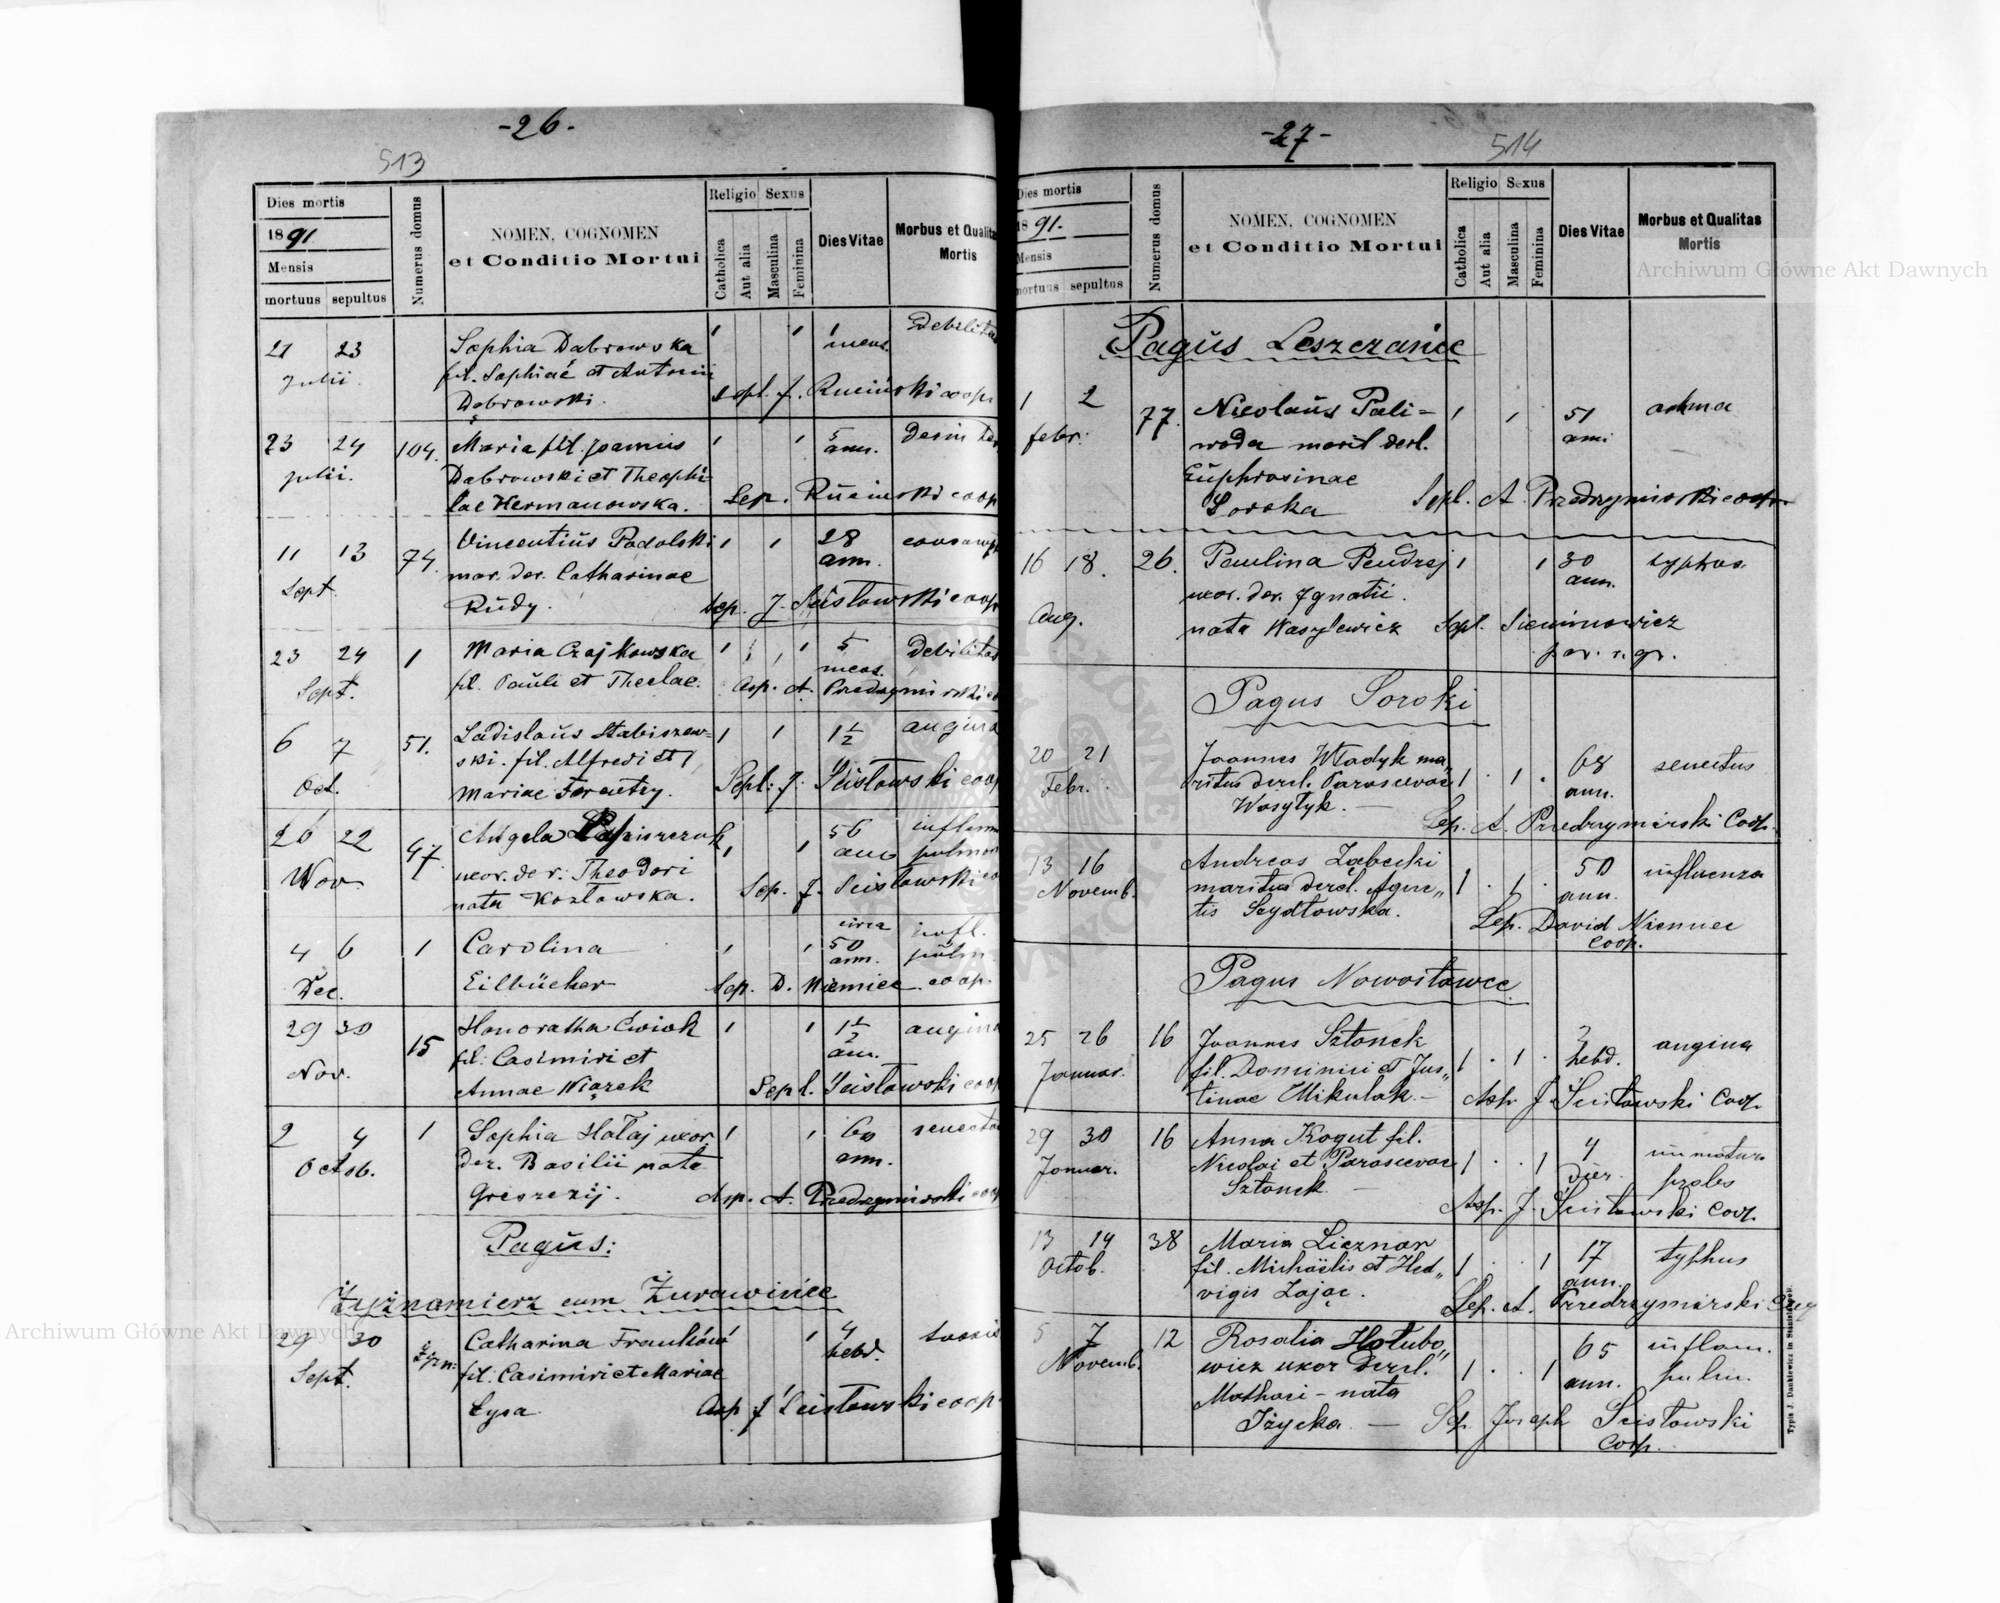 -26-
513
Dies mortis
1891
Mensis
mortuus sepultus
Numerus domus
NOMEN, COGNOMEN
et Conditio Mortui
Religio Sexus
Catholica
Aut alia
Masculina
Feminina
Dies Vitae
Morbus et Qualitas
Mortis
21 23 Sophia Dabrowska 1 1 1 Debilitas
julii. fil. Sophiae et Antonii mens.
Dąbrowski. sepl. J. Ruciński coop
23 24 104. Maria fil. Joannis 1 1 5
julii. Dabrowski et Theophi= ann.
lae Hermanowska. Sep. Ruciński coop
11 13 74. Vincentius Podolski 1 1 28
Sept. mar. der. Catharinae ann.
Rudy. Sep. J. Scisłowski coop
23 24 1 Maria Czajkowska 1 1 5 Debilitas
Sept. fil. Pauli et Theclae. mens.
Asp. A. Przedrzymirski
6 7 51. Ladislaus Stabiszew= 1 1 1½ angina
Oct. ski. fil. Alfredi et
Mariae Forentry. Sepl. J. Scisłowski coop
26 22 47. Angela 1 1 56
Nov. uxor. der. Theodori ann
nata Kozłowska. Sep. J. Scisłowski
4 6 1 Carolina 1 1 circa 50 infl.
Dec. Eilbücher ann. pulm.
Sep. D. Niemiec coop.
29 30 15 Honoratha Ćwiok 1 1 1½ angina
Nov. fil. Casimiri et ann.
Annae Wiązek Sepl. Scisłowski coop
2 4 1 Sophia Hałaj uxor 1 1 60
Octob. der. Basilii nata ann.
Greszczij. Asp. A. Przedrzymirski coop
Pagus:
Żyznomierz cum Żurawińce
29 30 Żyzn: Catharina Franków 1 4 tussis
Sept. fil. Casimiri et Mariae hebd.
Łysa Asp J Scisłowski coop.
-27-
514
Dies mortis
1891.
Mensis
mortuus sepultus
Numerus domus
NOMEN, COGNOMEN
et Conditio Mortui
Religio Sexus
Catholica
Aut alia
Masculina
Feminina
Dies Vitae
Morbus et Qualitas
Mortis
Pagus Leszczańce
1 2 77. Nicolaus Pali= 1 1 51
febr. woda marit derl. anni
Euphrosinae
Soroka Sepl. A. Przedrzymirski coop.
16 18. 26. Paulina Pendrej 1 1 30 typhus
Aug. uxor. der. Ignatii. ann.
nata Waszylewicz Sepl. Sieminowicz
par. r. gr.
Pagus Soroki
20 21 Joannes Władyk ma„ 1 1 68 senectus
Febr. ritus derel. Parascevae ann.
Wasyłyk. Sep. A. Przedrzymirski Coop.
13 16 Andreas Ząbecki 1 1 50 influenza
Novemb. maritus derel. Agne„ ann.
tis Szydłowska. Sep. David Niemiec
coop.
Pagus Nowostawce
25 26 16 Joannes Sztonek 1 1 hebd. angina
Januar. fil. Dominici et Jus„
tinae Mikulak. Asp. J. Scisłowski Coop.
29 30 16 Anna Kogut fil. 1 1 4 immatura
Januar. Nicolai et Parascevae dier. proles
Sztonek. Asp. J. Scisłowski Coop.
13 14 38 Maria Licznar 1 1 17 typhus
Octob. fil. Michaëlis et Hed„ ann.
vigis Zając. Sep. A. Przedrzymirski
5 7 12 Rosalia Hołubo„ 1 1 65 inflam.
Novemb. wicz uxor derel. ann. pulm.
Mathaei - nata
Iżycka. Sep. Joseph Scisłowski
Coop.
Typis J. Dankiewicz in Stanislau
Archiwum Główne Akt Dawnych
Archiwum Główne Akt Dawnych